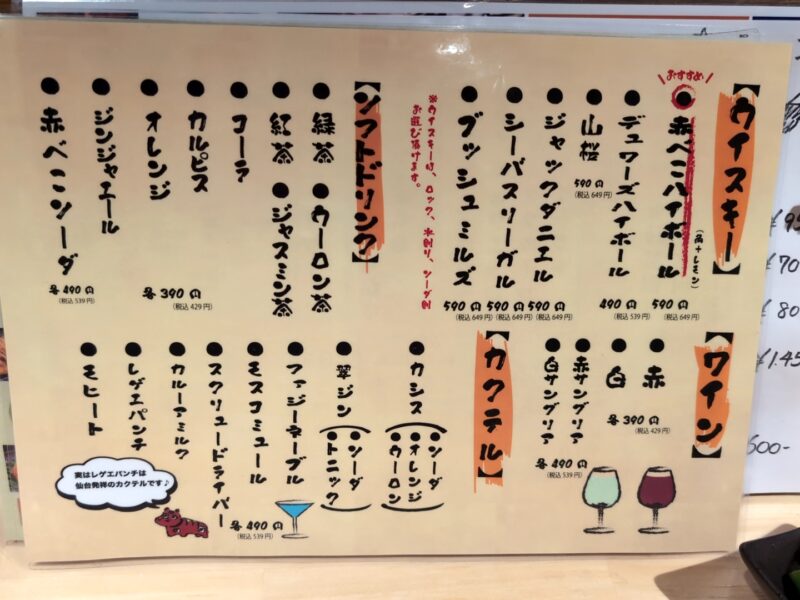 【ウイスキー】
おすすめ
赤べこハイボール
590円
(税込649円)
デュワーズハイボール
490円
(税込539円)
山桜
590円
(税込649円)
ジャックダニエル
590円
(税込649円)
シーバスリーガル
590円
(税込649円)
ブッシュミルズ
590円
(税込649円)
※ウイスキーは、ロック、水割り、ソーダ割
お選び頂けます。
【ソフトドリンク】
緑茶
ウーロン茶
紅茶
ジャスミン茶
コーラ
カルピス
オレンジ
各390円
(税込429円)
ジンジャエール
赤べこソーダ
各490円
(税込539円)
【ワイン】
赤
白
各390円
(税込429円)
赤サングリア
白サングリア
各490円
(税込539円)
【カクテル】
カシス
ソーダ
オレンジ
ウーロン
翠ジン
ソーダ
トニック
ファジーネーブル
モスコミュール
スクリュードライバー
カルーアミルク
レゲエパンチ
モヒート
各490円
(税込539円)
実はレゲエパンチは
仙台発祥のカクテルです♪